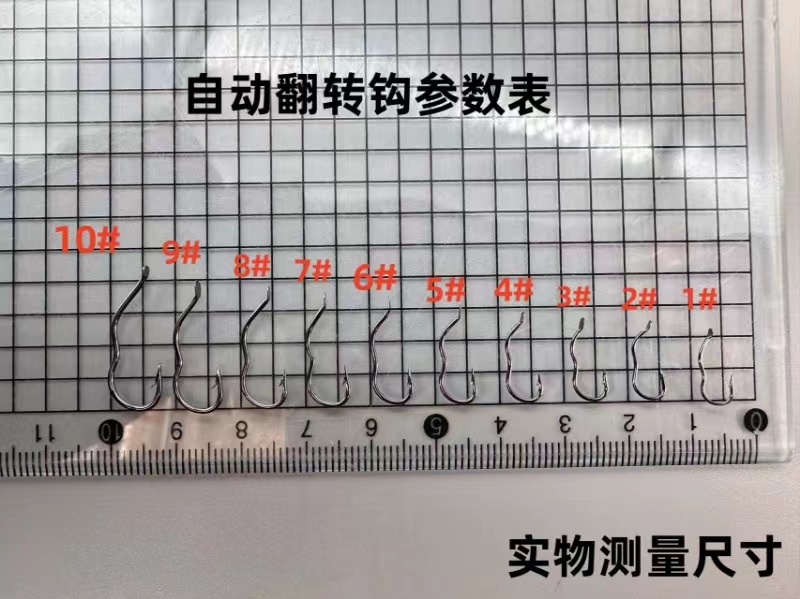 自动翻转钩参数表
10# 9# 8# 7# 6# 5# 4# 3# 2# 1#
11 10 9 8 7 6 5 4 3 2 1 0
实物测量尺寸